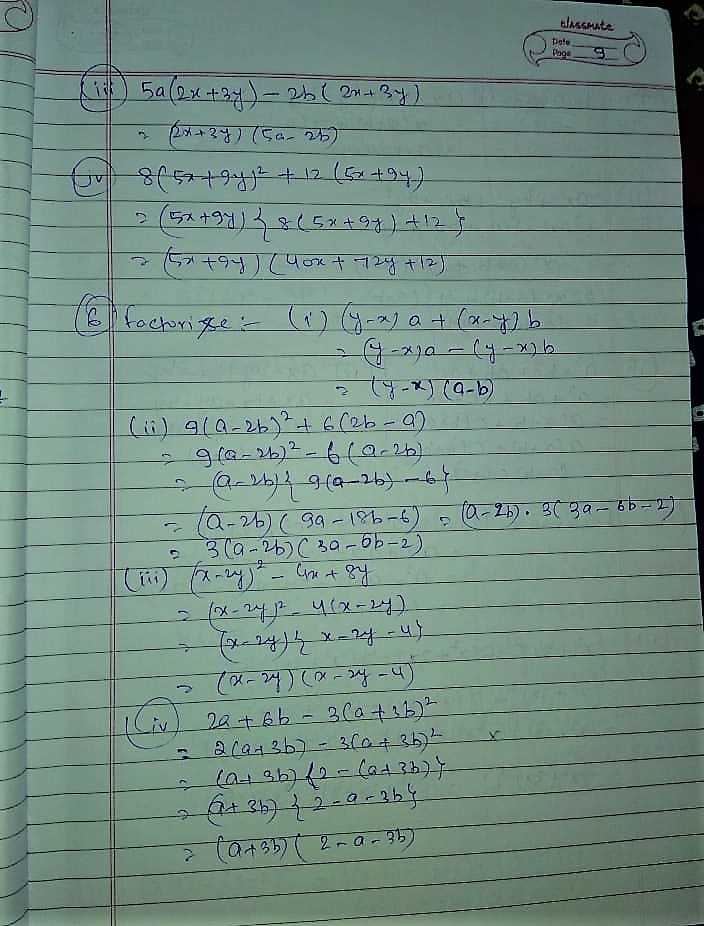 classmate
Date
Page 9
(iii) 5a(2x+3y) - 2b(2x+3y)
= (2x+3y) (5a-2b)
(iv) 8(5x+9y)² + 12(5x+9y)
= (5x+9y) { 8(5x+9y) +12 }
= (5x+9y) (40x + 72y +12)
(6) factorize :- (i) (y-x) a + (x-y) b
= (y-x)a - (y-x)b
= (y-x) (a-b)
(ii) 9(a-2b)² + 6(2b-a)
= 9(a-2b)² - 6(a-2b)
= (a-2b) { 9(a-2b) - 6 }
= (a-2b) ( 9a-18b-6) = (a-2b) . 3( 3a-6b-2)
= 3(a-2b) ( 3a-6b-2)
(iii) (x-2y)² - 4x + 8y
= (x-2y)² - 4(x-2y)
= (x-2y) { x-2y-4}
= (x-2y) (x-2y-4)
(iv) 2a + 6b - 3(a+3b)²
= 2(a+3b) - 3(a+3b)² x
= (a+3b) {2-(a+3b)}
= (a+3b) { 2-a-3b}
= (a+3b) ( 2-a-3b)